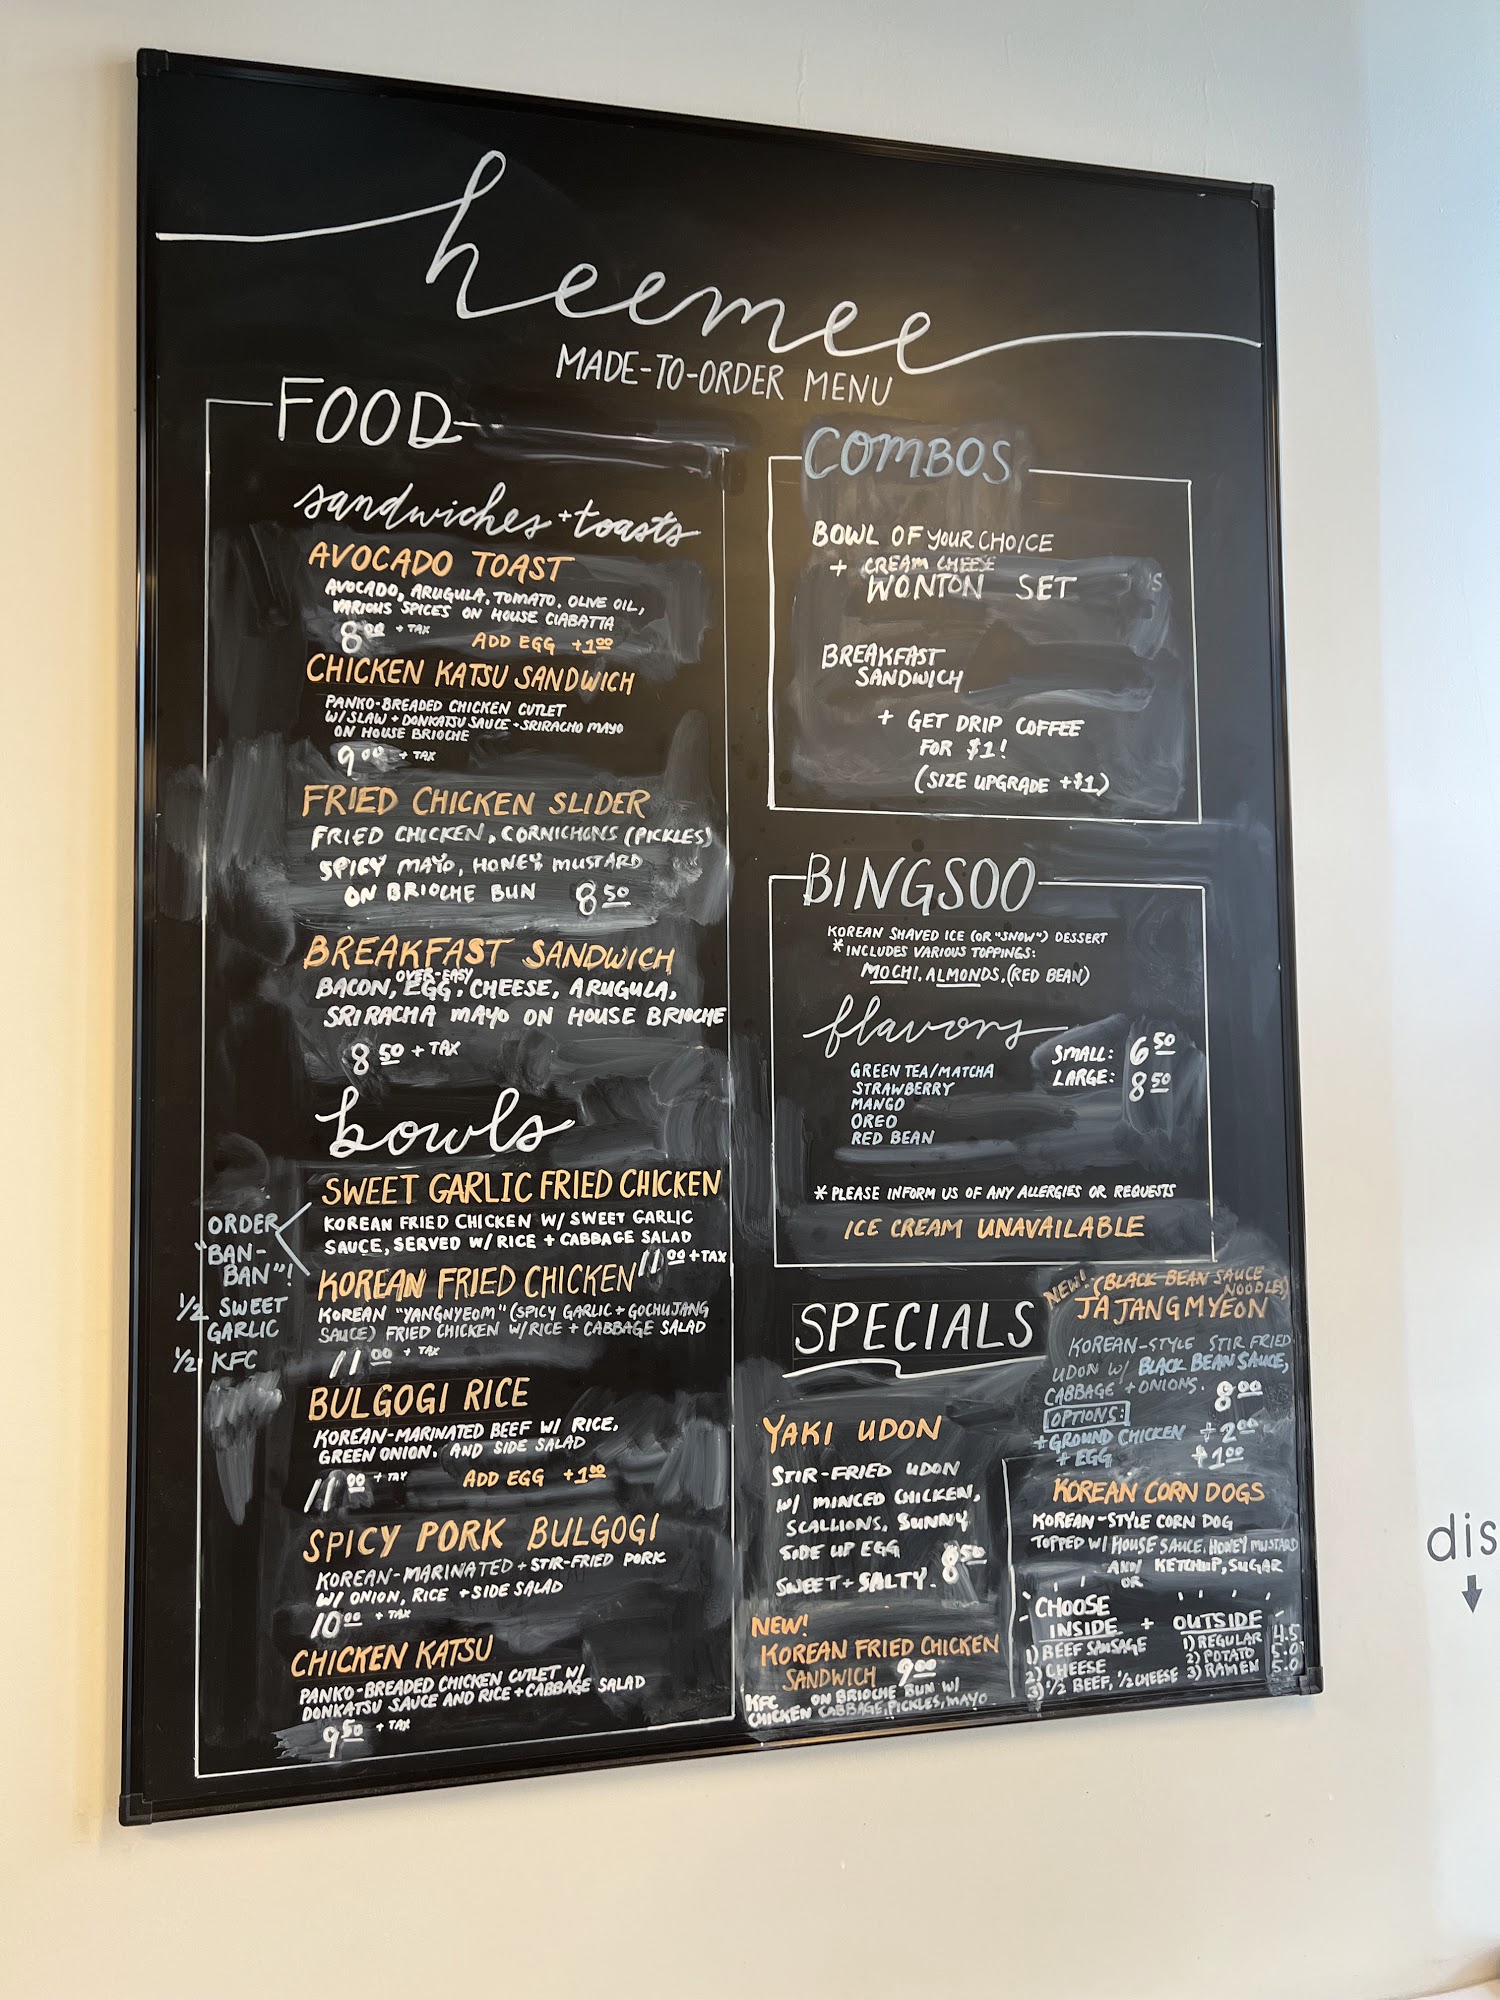 heemee
MADE-TO-ORDER MENU
FOOD
sandwiches + toasts
AVOCADO TOAST
AVOCADO, ARUGULA, TOMATO, OLIVE OIL,
VARIOUS SPICES ON HOUSE CIABATTA
8.00 + TAX ADD EGG +1.00
CHICKEN KATSU SANDWICH
PANKO-BREADED CHICKEN CUTLET
W/ SLAW + DONKATSU SAUCE + SRIRACHO MAYO
ON HOUSE BRIOCHE
9.00 + TAX
FRIED CHICKEN SLIDER
FRIED CHICKEN, CORNICHONS (PICKLES)
SPICY MAYO, HONEY MUSTARD
ON BRIOCHE BUN 8.50
BREAKFAST SANDWICH
OVER-EASY
BACON, EGG, CHEESE, ARUGULA,
SRIRACHA MAYO ON HOUSE BRIOCHE
8.50 + TAX
bowls
SWEET GARLIC FRIED CHICKEN
KOREAN FRIED CHICKEN W/ SWEET GARLIC
SAUCE, SERVED W/ RICE + CABBAGE SALAD
11.00 + TAX
KOREAN FRIED CHICKEN
KOREAN "YANGNYEOM" (SPICY GARLIC + GOCHUJANG
SAUCE) FRIED CHICKEN W/ RICE + CABBAGE SALAD
11.00 + TAX
ORDER
"BAN-
BAN"!
1/2 SWEET
GARLIC
1/2 KFC
BULGOGI RICE
KOREAN-MARINATED BEEF W/ RICE,
GREEN ONION, AND SIDE SALAD
11.00 + TAX ADD EGG +1.00
SPICY PORK BULGOGI
KOREAN-MARINATED + STIR-FRIED PORK
W/ ONION, RICE + SIDE SALAD
10.00 + TAX
CHICKEN KATSU
PANKO-BREADED CHICKEN CUTLET W/
DONKATSU SAUCE AND RICE + CABBAGE SALAD
9.50 + TAX
COMBOS
BOWL OF YOUR CHOICE
+ CREAM CHEESE
WONTON SET
BREAKFAST
SANDWICH
+ GET DRIP COFFEE
FOR $1!
(SIZE UPGRADE +$1)
BINGSOO
KOREAN SHAVED ICE (OR "SNOW") DESSERT
* INCLUDES VARIOUS TOPPINGS:
MOCHI, ALMONDS, (RED BEAN)
flavors
SMALL: 6.50
LARGE: 8.50
GREEN TEA/MATCHA
STRAWBERRY
MANGO
OREO
RED BEAN
* PLEASE INFORM US OF ANY ALLERGIES OR REQUESTS
ICE CREAM UNAVAILABLE
SPECIALS
YAKI UDON
STIR-FRIED UDON
W/ MINCED CHICKEN,
SCALLIONS, SUNNY
SIDE UP EGG
SWEET + SALTY. 8.50
NEW!
KOREAN FRIED CHICKEN
SANDWICH 9.00
KFC ON BRIOCHE BUN W/
CHICKEN CABBAGE, PICKLES, MAYO
NEW! (BLACK BEAN SAUCE
NOODLES)
JAJANGMYEON
KOREAN-STYLE STIR FRIED
UDON W/ BLACK BEAN SAUCE,
CABBAGE + ONIONS. 8.00
OPTIONS:
+ GROUND CHICKEN +2.00
+ EGG +1.00
KOREAN CORN DOGS
KOREAN-STYLE CORN DOG
TOPPED W/ HOUSE SAUCE, HONEY MUSTARD
AND/ KETCHUP, SUGAR
OR
CHOOSE
INSIDE + OUTSIDE
1) BEEF SAUSAGE 1) REGULAR 4.5
2) CHEESE 2) POTATO 5.0
3) 1/2 BEEF, 1/2 CHEESE 3) RAMEN 5.0
dis